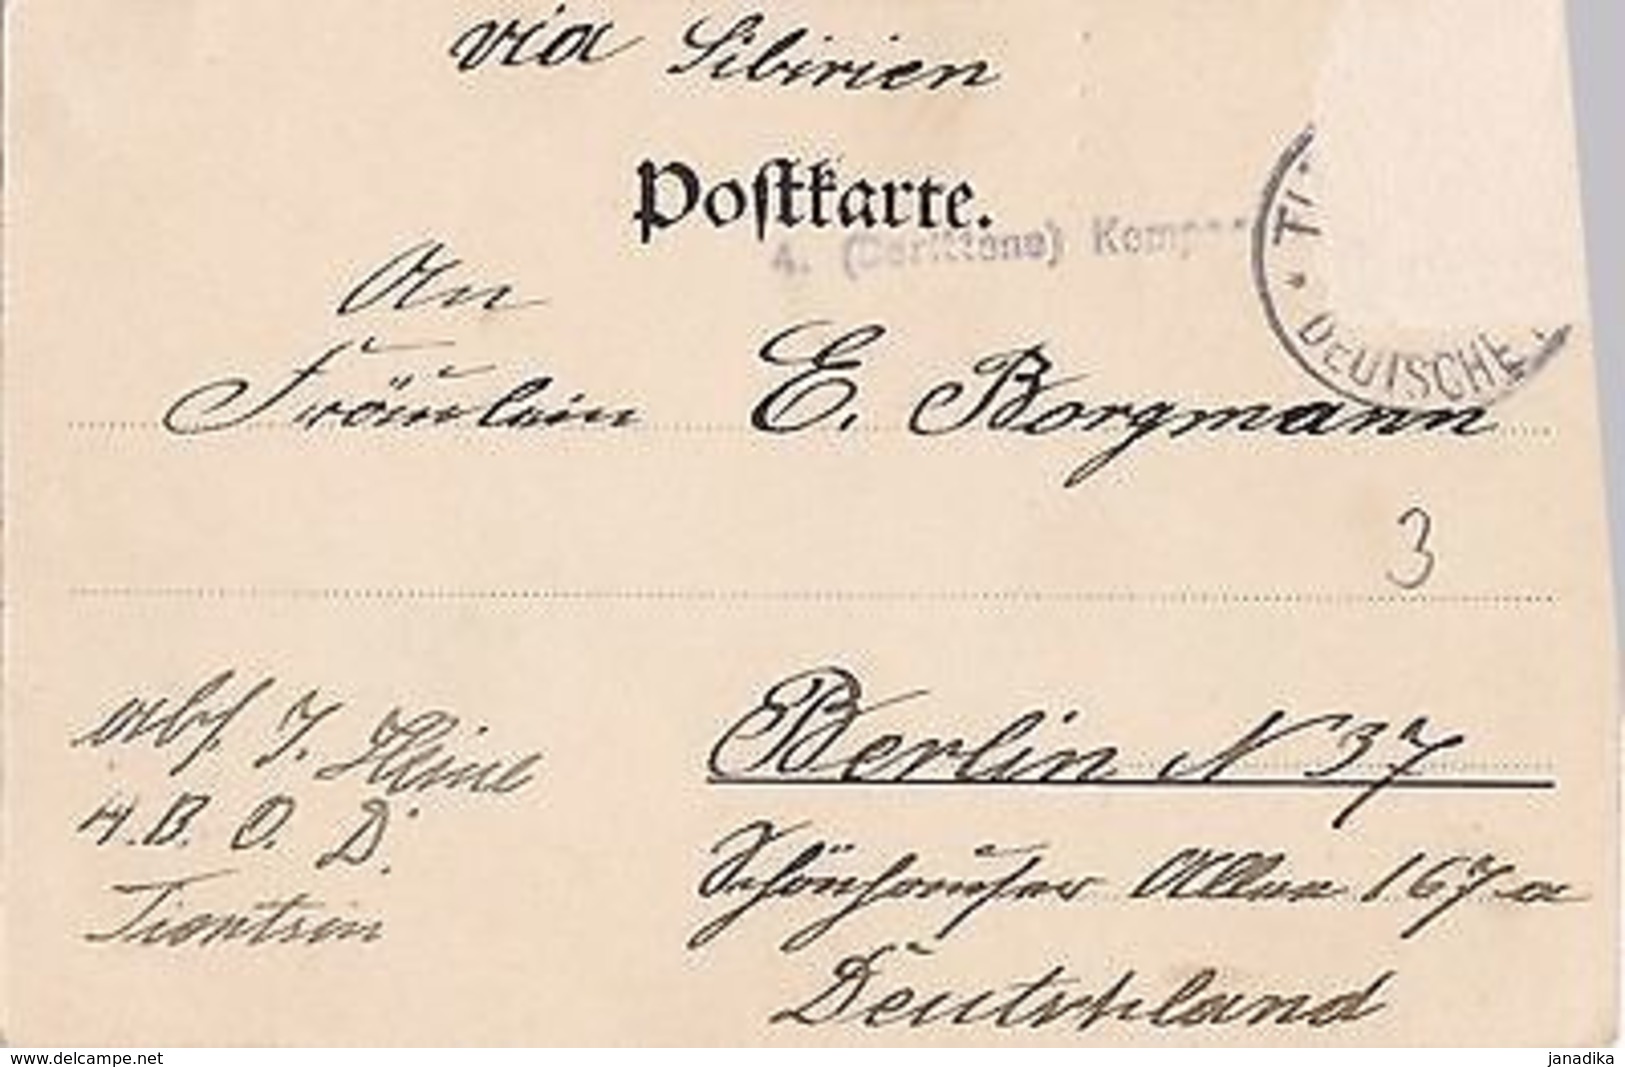 via Sibirien
Postkarte.
4. (Berittene) Kompa
TI
DEUTSCHE
An
Fräulein E. Borgmann
3
Berlin N 37
Schönhauser Allee 167a
Deutschland
abs. J. Heine
4. B. O. D.
Tientsin
www.delcampe.net
janadika